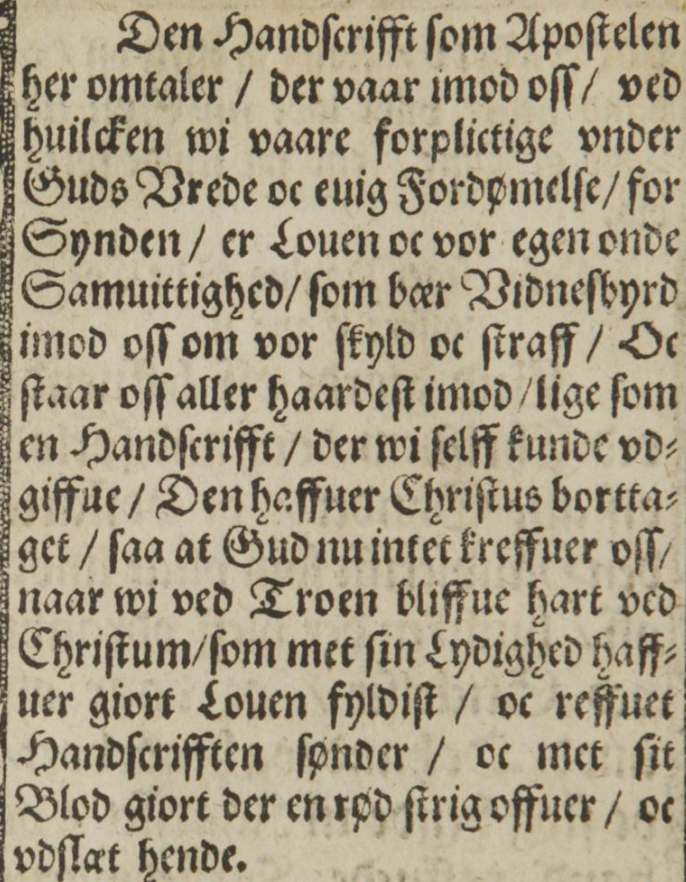 Den Handscrifft som Apostelen
her omtaler / der vaar imod oss / ved
huilcken wi vaare forplictige vnder
Guds Vrede oc euig Fordømelse / for
Synden / er Louen oc vor egen onde
Samuittighed / som bær Vidnesbyrd
imod oss om vor skyld oc straff / Oc
staar oss aller haardest imod / lige som
en Handscrifft / der wi selff kunde vd⸗
giffue / Den haffuer Christus bortta⸗
get / saa at Gud nu intet kreffuer oss /
naar wi ved Troen bliffue hart ved
Christum / som met sin Lydighed haff⸗
uer giort Louen fyldist / oc reffuet
Handscrifften sønder / oc met sit
Blod giort der en rød strig offuer / oc
vdslæt hende.